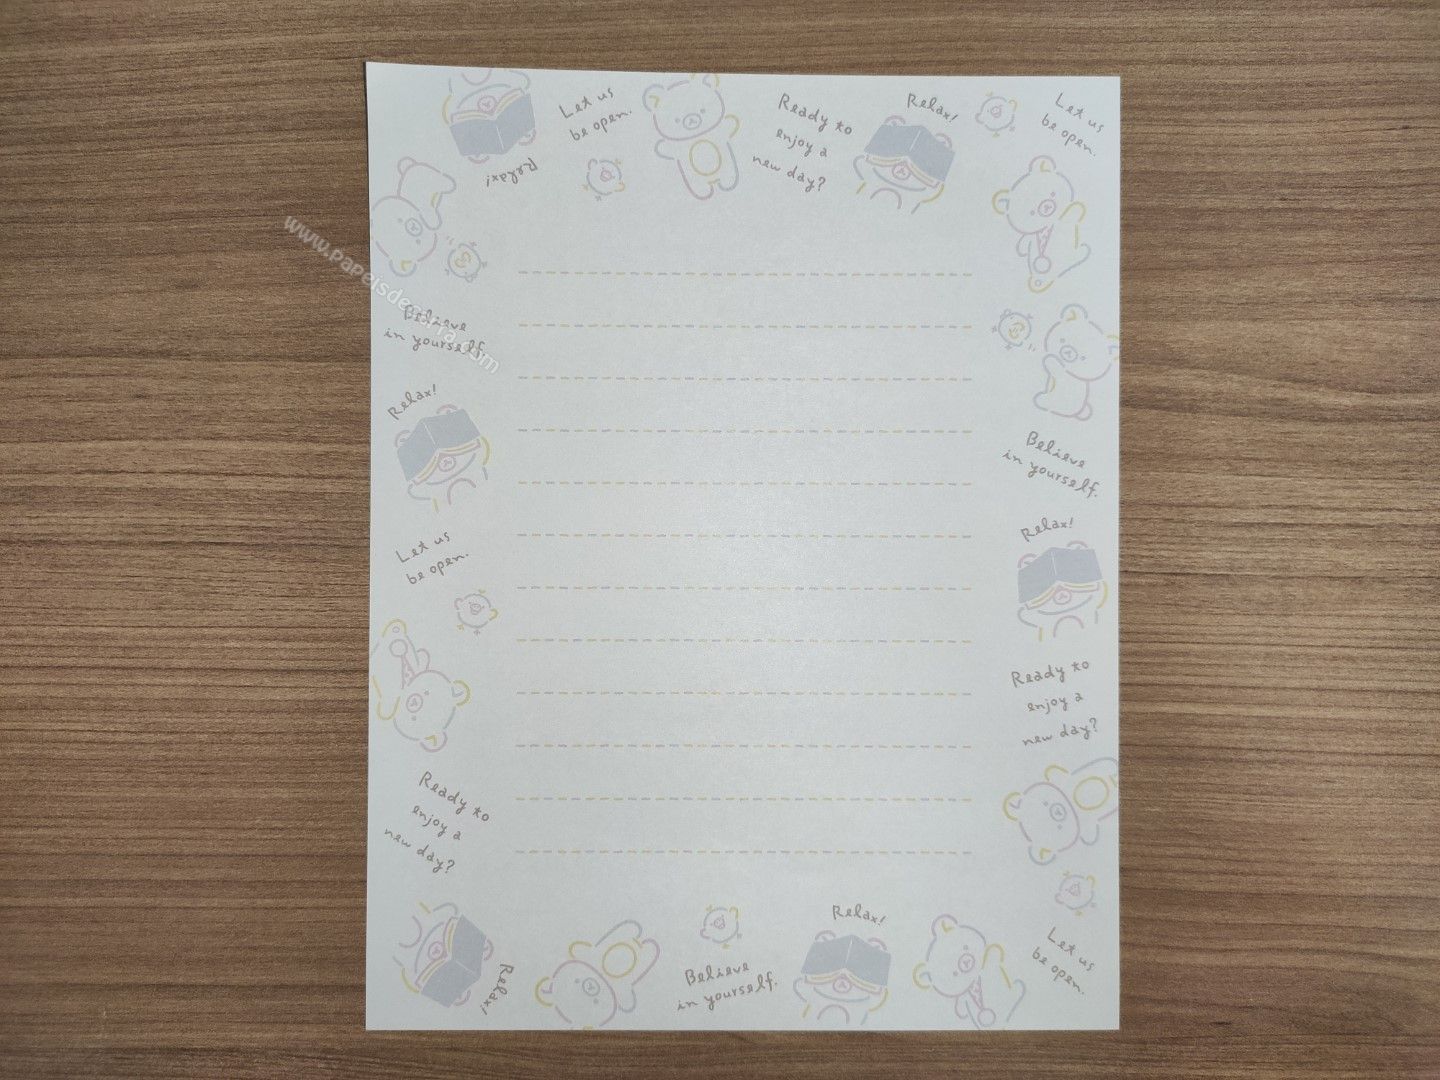 Let us
be open.
Ready to
enjoy a
new day?
Relax!
Let us
be open.
Relax!
www.papeisdecarta.com
Believe
in yourself.
Relax!
Believe
in yourself.
Let us
be open.
Relax!
Ready to
enjoy a
new day?
Ready to
enjoy a
new day?
Relax!
Relax!
Believe
in yourself.
Let us
be open.